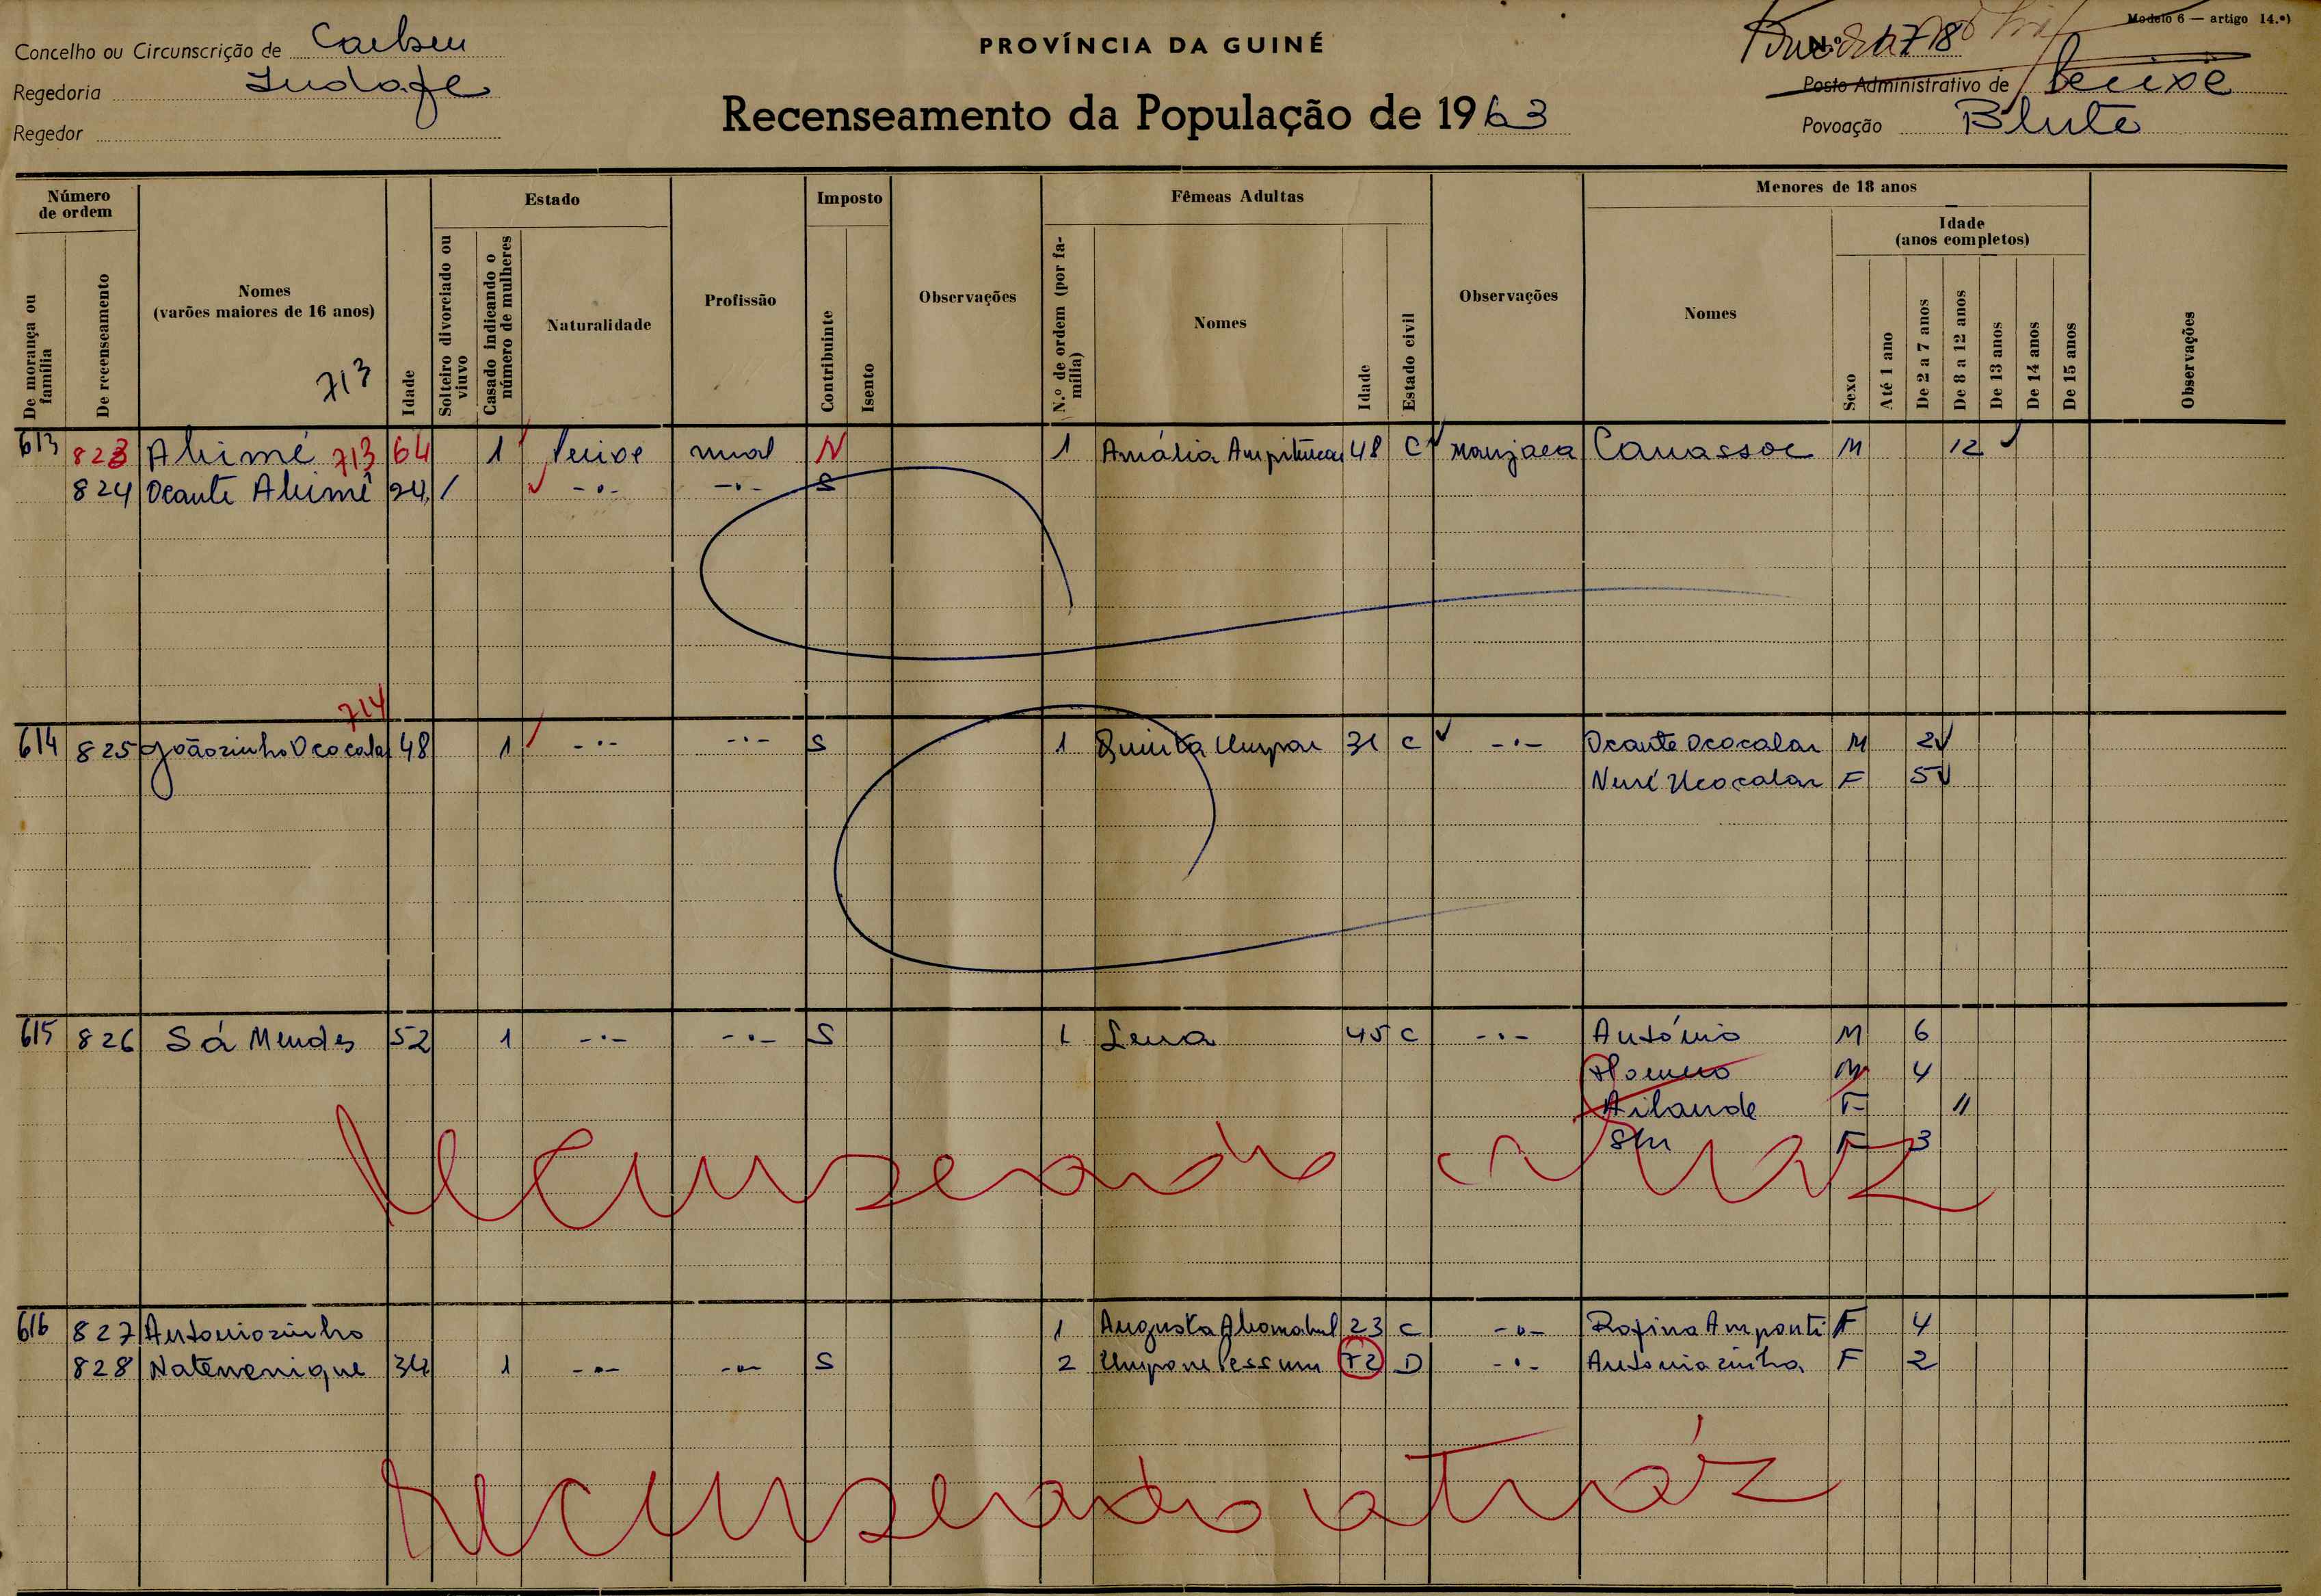 Concelho ou Circunscrição de Cacheu
Regedoria
Regedor
PROVÍNCIA DA GUINÉ
Recenseamento da População de 1963
Modelo 6 — artigo 14.º)
Posto Administrativo de
Povoação Blute
Número de ordem
De morança ou família
De recenseamento
Nomes
(varões maiores de 16 anos)
713
Idade
Estado
Solteiro divorciado ou viuvo
Casado indicando o número de mulheres
Naturalidade
Profissão
Imposto
Contribuinte
Isento
Observações
Fêmeas Adultas
N.º de ordem (por família)
Nomes
Idade
Estado civil
Observações
Menores de 18 anos
Nomes
Sexo
Idade
(anos completos)
Até 1 ano
De 2 a 7 anos
De 8 a 12 anos
De 13 anos
De 14 anos
De 15 anos
Observações
613 823 713 64 1 N 1 Amália 48 C Manjaca Canassoe M 12
824 Ocante 24 / -·- -·- S
714
614 825 Joãozinho Ococalar 48 1 -·- -·- S 1 31 C -·- Ocante Ococalar M 2
Ococalar F 5
615 826 Sá Mendes 52 1 -·- -·- S 1 Lena 45 C -·- António M 6
M 4
F 11
F 3
Recenseado atraz
616 827 Antoniozinho 1 Augusta 23 C -·- Rofina Amponti F 4
828 Natemenique 34 1 -·- -·- S 2 72 D -·- Antoniazinha F 2
recenseado atráz